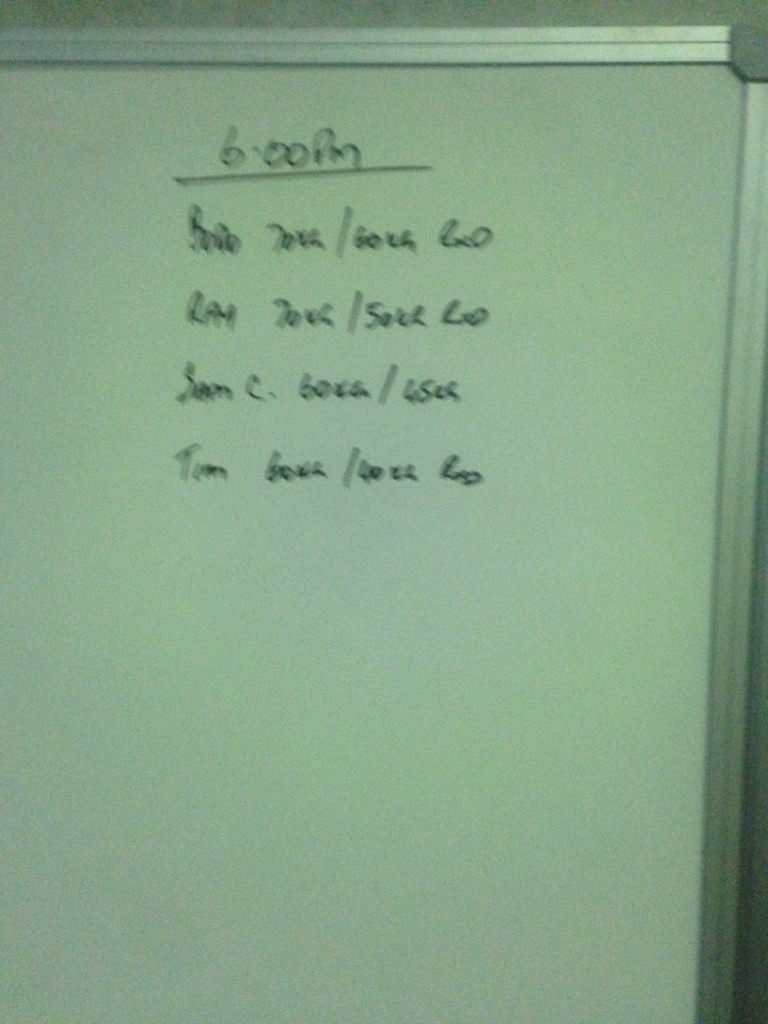 6.00PM
70KG / 60KG RXD
RAM 70KG / 50KG RXD
SAM C. 60KG / 45KG
TIM 60KG / 40KG RXD